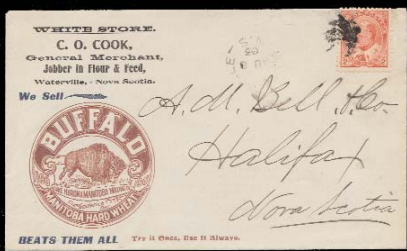 WHITE STORE.
C. O. COOK,
General Merchant,
Jobber in Flour & Feed,
Waterville, - Nova Scotia.
We Sell
BUFFALO
MANITOBA HARD WHEAT
BEATS THEM ALL
Try it Once, Use it Always.
A. M. Bell & Co.
Halifax
Nova Scotia